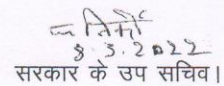 8.3.2022
सरकार के उप सचिव।